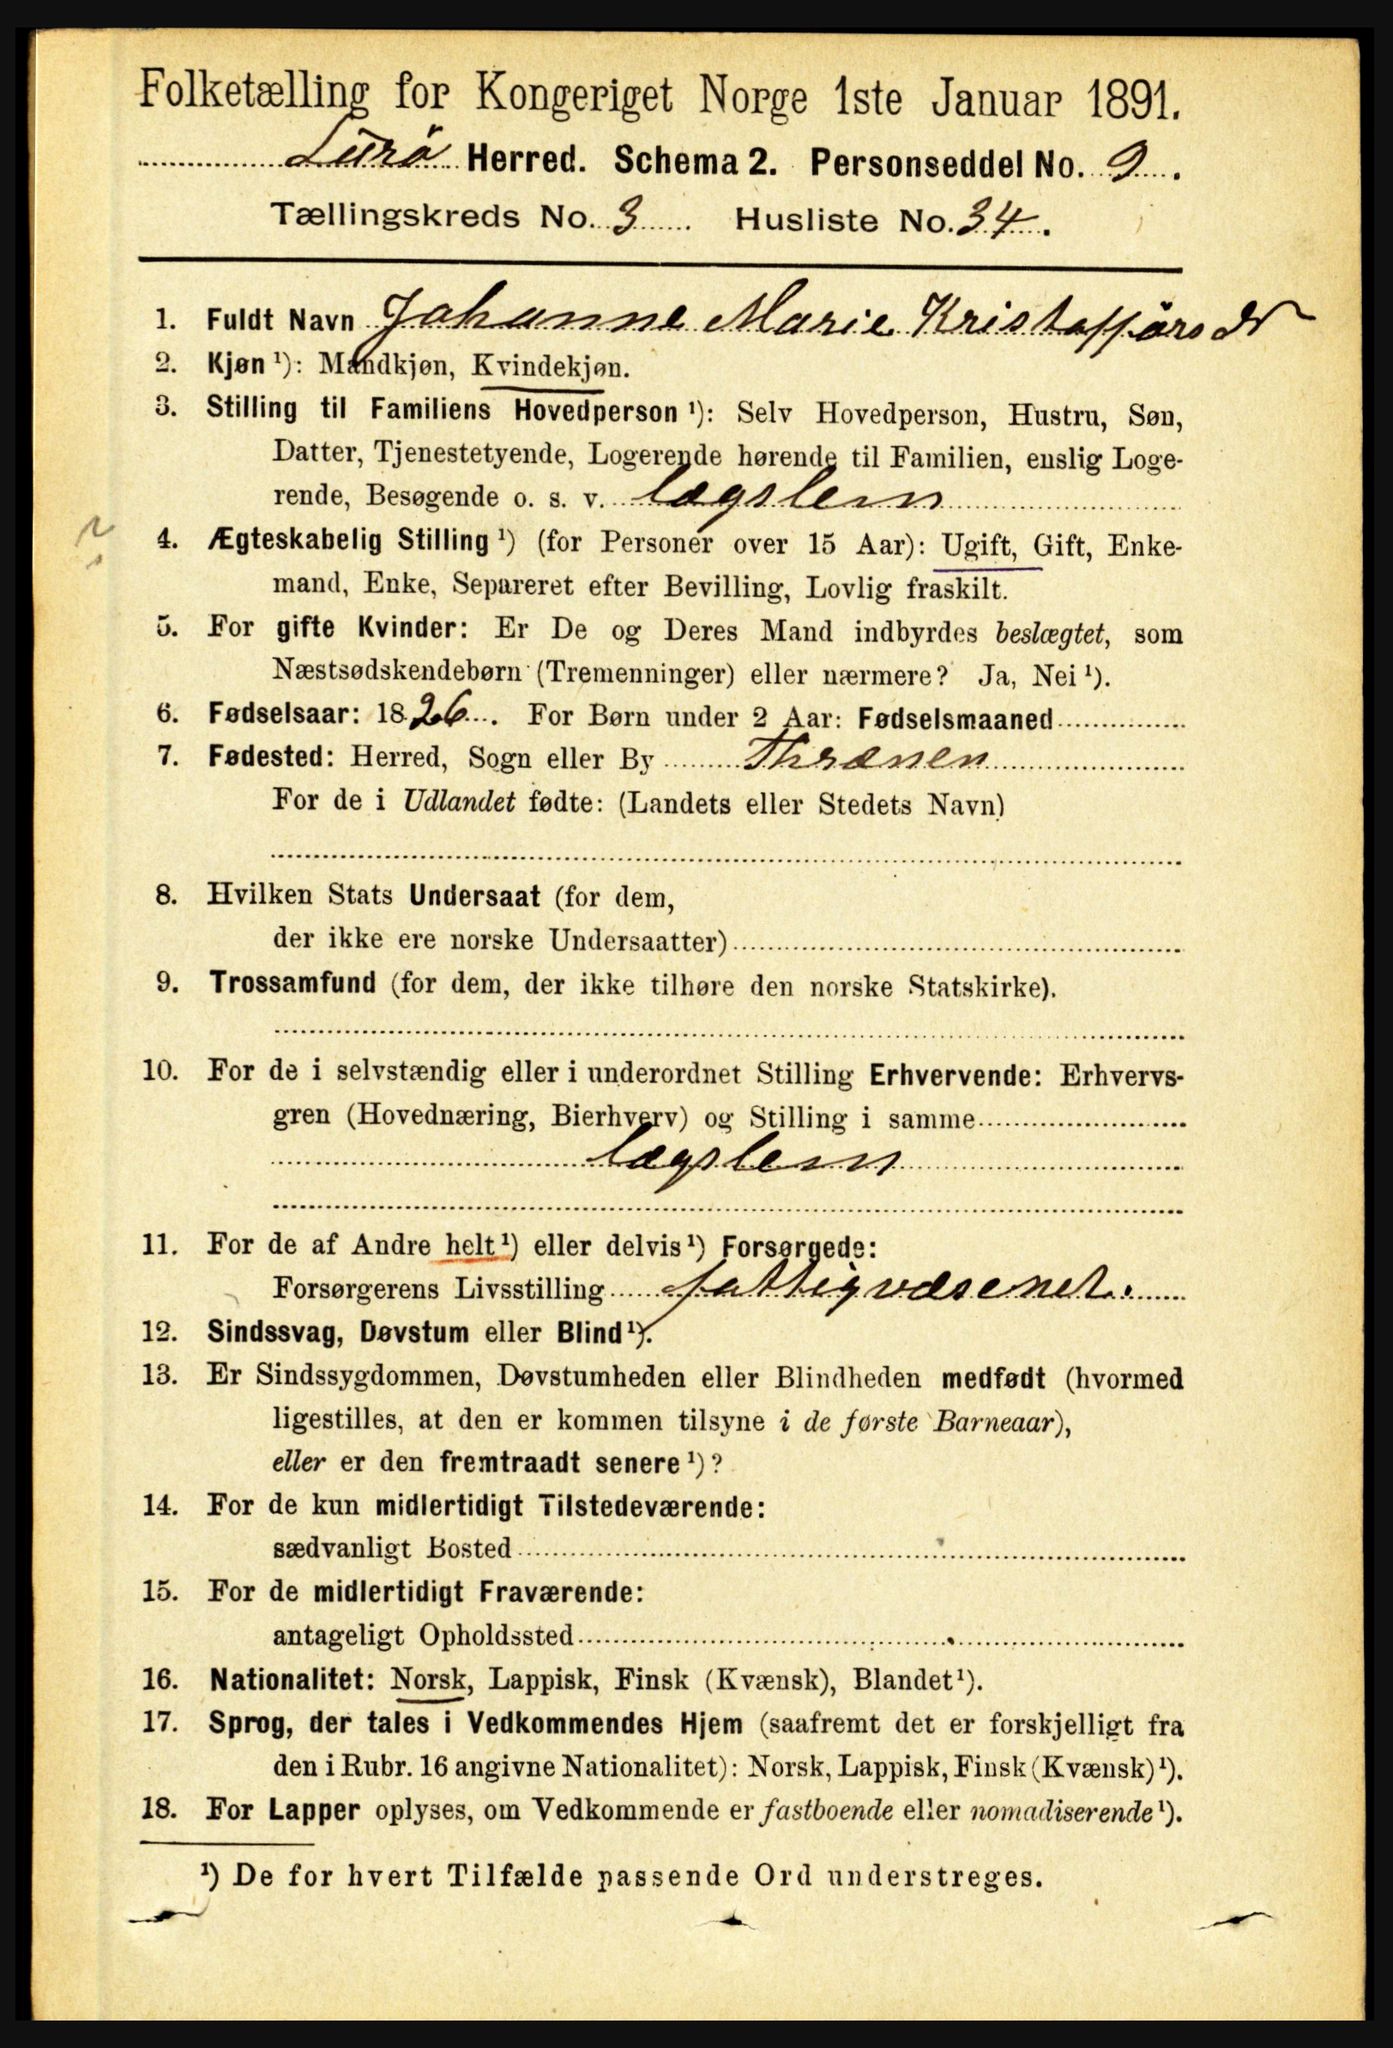 Folketælling for Kongeriget Norge 1ste Januar 1891.
Lurø Herred. Schema 2. Personseddel No. 9.
Tællingskreds No. 3 Husliste No. 34.
1. Fuldt Navn Johanne Marie Kristoffers dr
2. Kjøn ¹): Mandkjøn, Kvindekjøn.
3. Stilling til Familiens Hovedperson ¹): Selv Hovedperson, Hustru, Søn,
Datter, Tjenestetyende, Logerende hørende til Familien, enslig Loge-
rende, Besøgende o. s. v. lægslem
4. Ægteskabelig Stilling ¹) (for Personer over 15 Aar): Ugift, Gift, Enke-
mand, Enke, Separeret efter Bevilling, Lovlig fraskilt.
5. For gifte Kvinder: Er De og Deres Mand indbyrdes beslægtet, som
Næstsødskendebørn (Tremenninger) eller nærmere? Ja, Nei ¹).
6. Fødselsaar: 1826. For Børn under 2 Aar: Fødselsmaaned
7. Fødested: Herred, Sogn eller By Thrænen
For de i Udlandet fødte: (Landets eller Stedets Navn)
8. Hvilken Stats Undersaat (for dem,
der ikke ere norske Undersaatter)
9. Trossamfund (for dem, der ikke tilhøre den norske Statskirke).
10. For de i selvstændig eller i underordnet Stilling Erhvervende: Erhvervs-
gren (Hovednæring, Bierhverv) og Stilling i samme
lægslem
11. For de af Andre helt ¹) eller delvis ¹) Forsørgede:
Forsørgerens Livsstilling fattigvæsenet.
12. Sindssvag, Døvstum eller Blind ¹).
13. Er Sindssygdommen, Døvstumheden eller Blindheden medfødt (hvormed
ligestilles, at den er kommen tilsyne i de første Barneaar),
eller er den fremtraadt senere ¹)?
14. For de kun midlertidigt Tilstedeværende:
sædvanligt Bosted
15. For de midlertidigt Fraværende:
antageligt Opholdssted
16. Nationalitet: Norsk, Lappisk, Finsk (Kvænsk), Blandet ¹).
17. Sprog, der tales i Vedkommendes Hjem (saafremt det er forskjelligt fra
den i Rubr. 16 angivne Nationalitet): Norsk, Lappisk, Finsk (Kvænsk) ¹).
18. For Lapper oplyses, om Vedkommende er fastboende eller nomadiserende ¹).
¹) De for hvert Tilfælde passende Ord understreges.